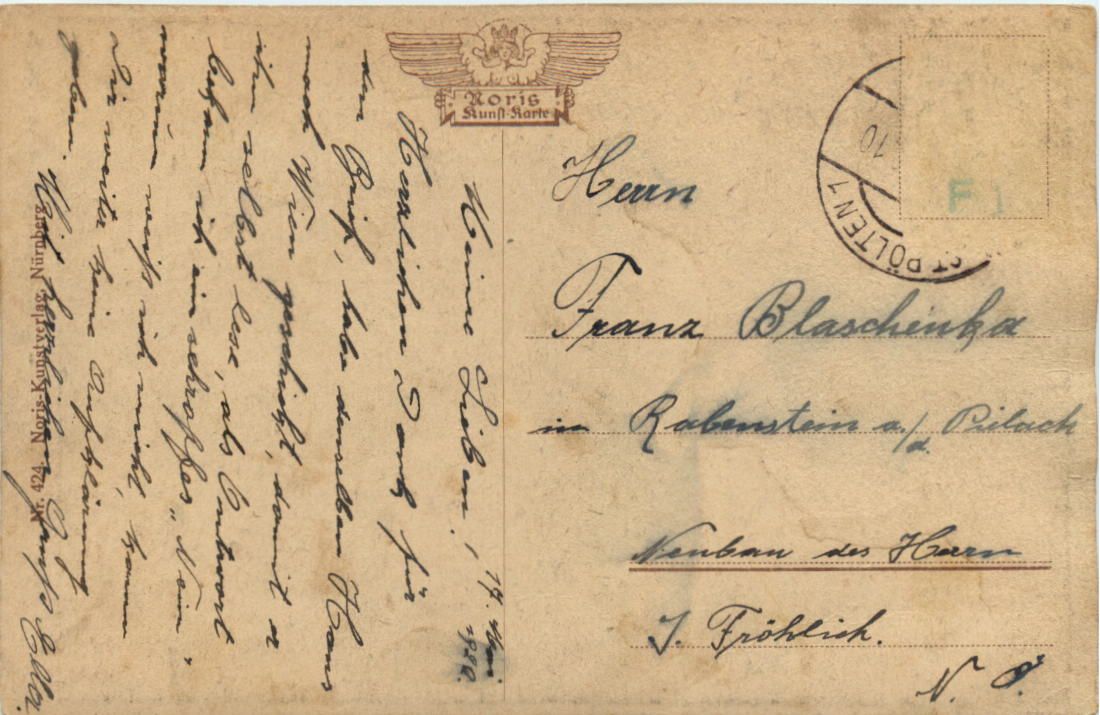 Noris
Kunst-Karte
Meine Lieben!
17. Mai
Herzlichen Dank für
den Brief, habe denselben Hans
nach Wien geschickt, damit er
ihn selbst lese, als Antwort
bekam ich ein schroffes „Nein"
warum weiß ich nicht, kann
Dir weiter keine Aufklärung
geben.
Mit herzlichem Gruß Ella.
Nr. 424. Noris-Kunstverlag, Nürnberg
ST. PÖLTEN 1
10
F
Herrn
Franz Blaschenka
in Rabenstein a./d. Pielach
Neubau des Herrn
J. Fröhlich.
N. Ö.